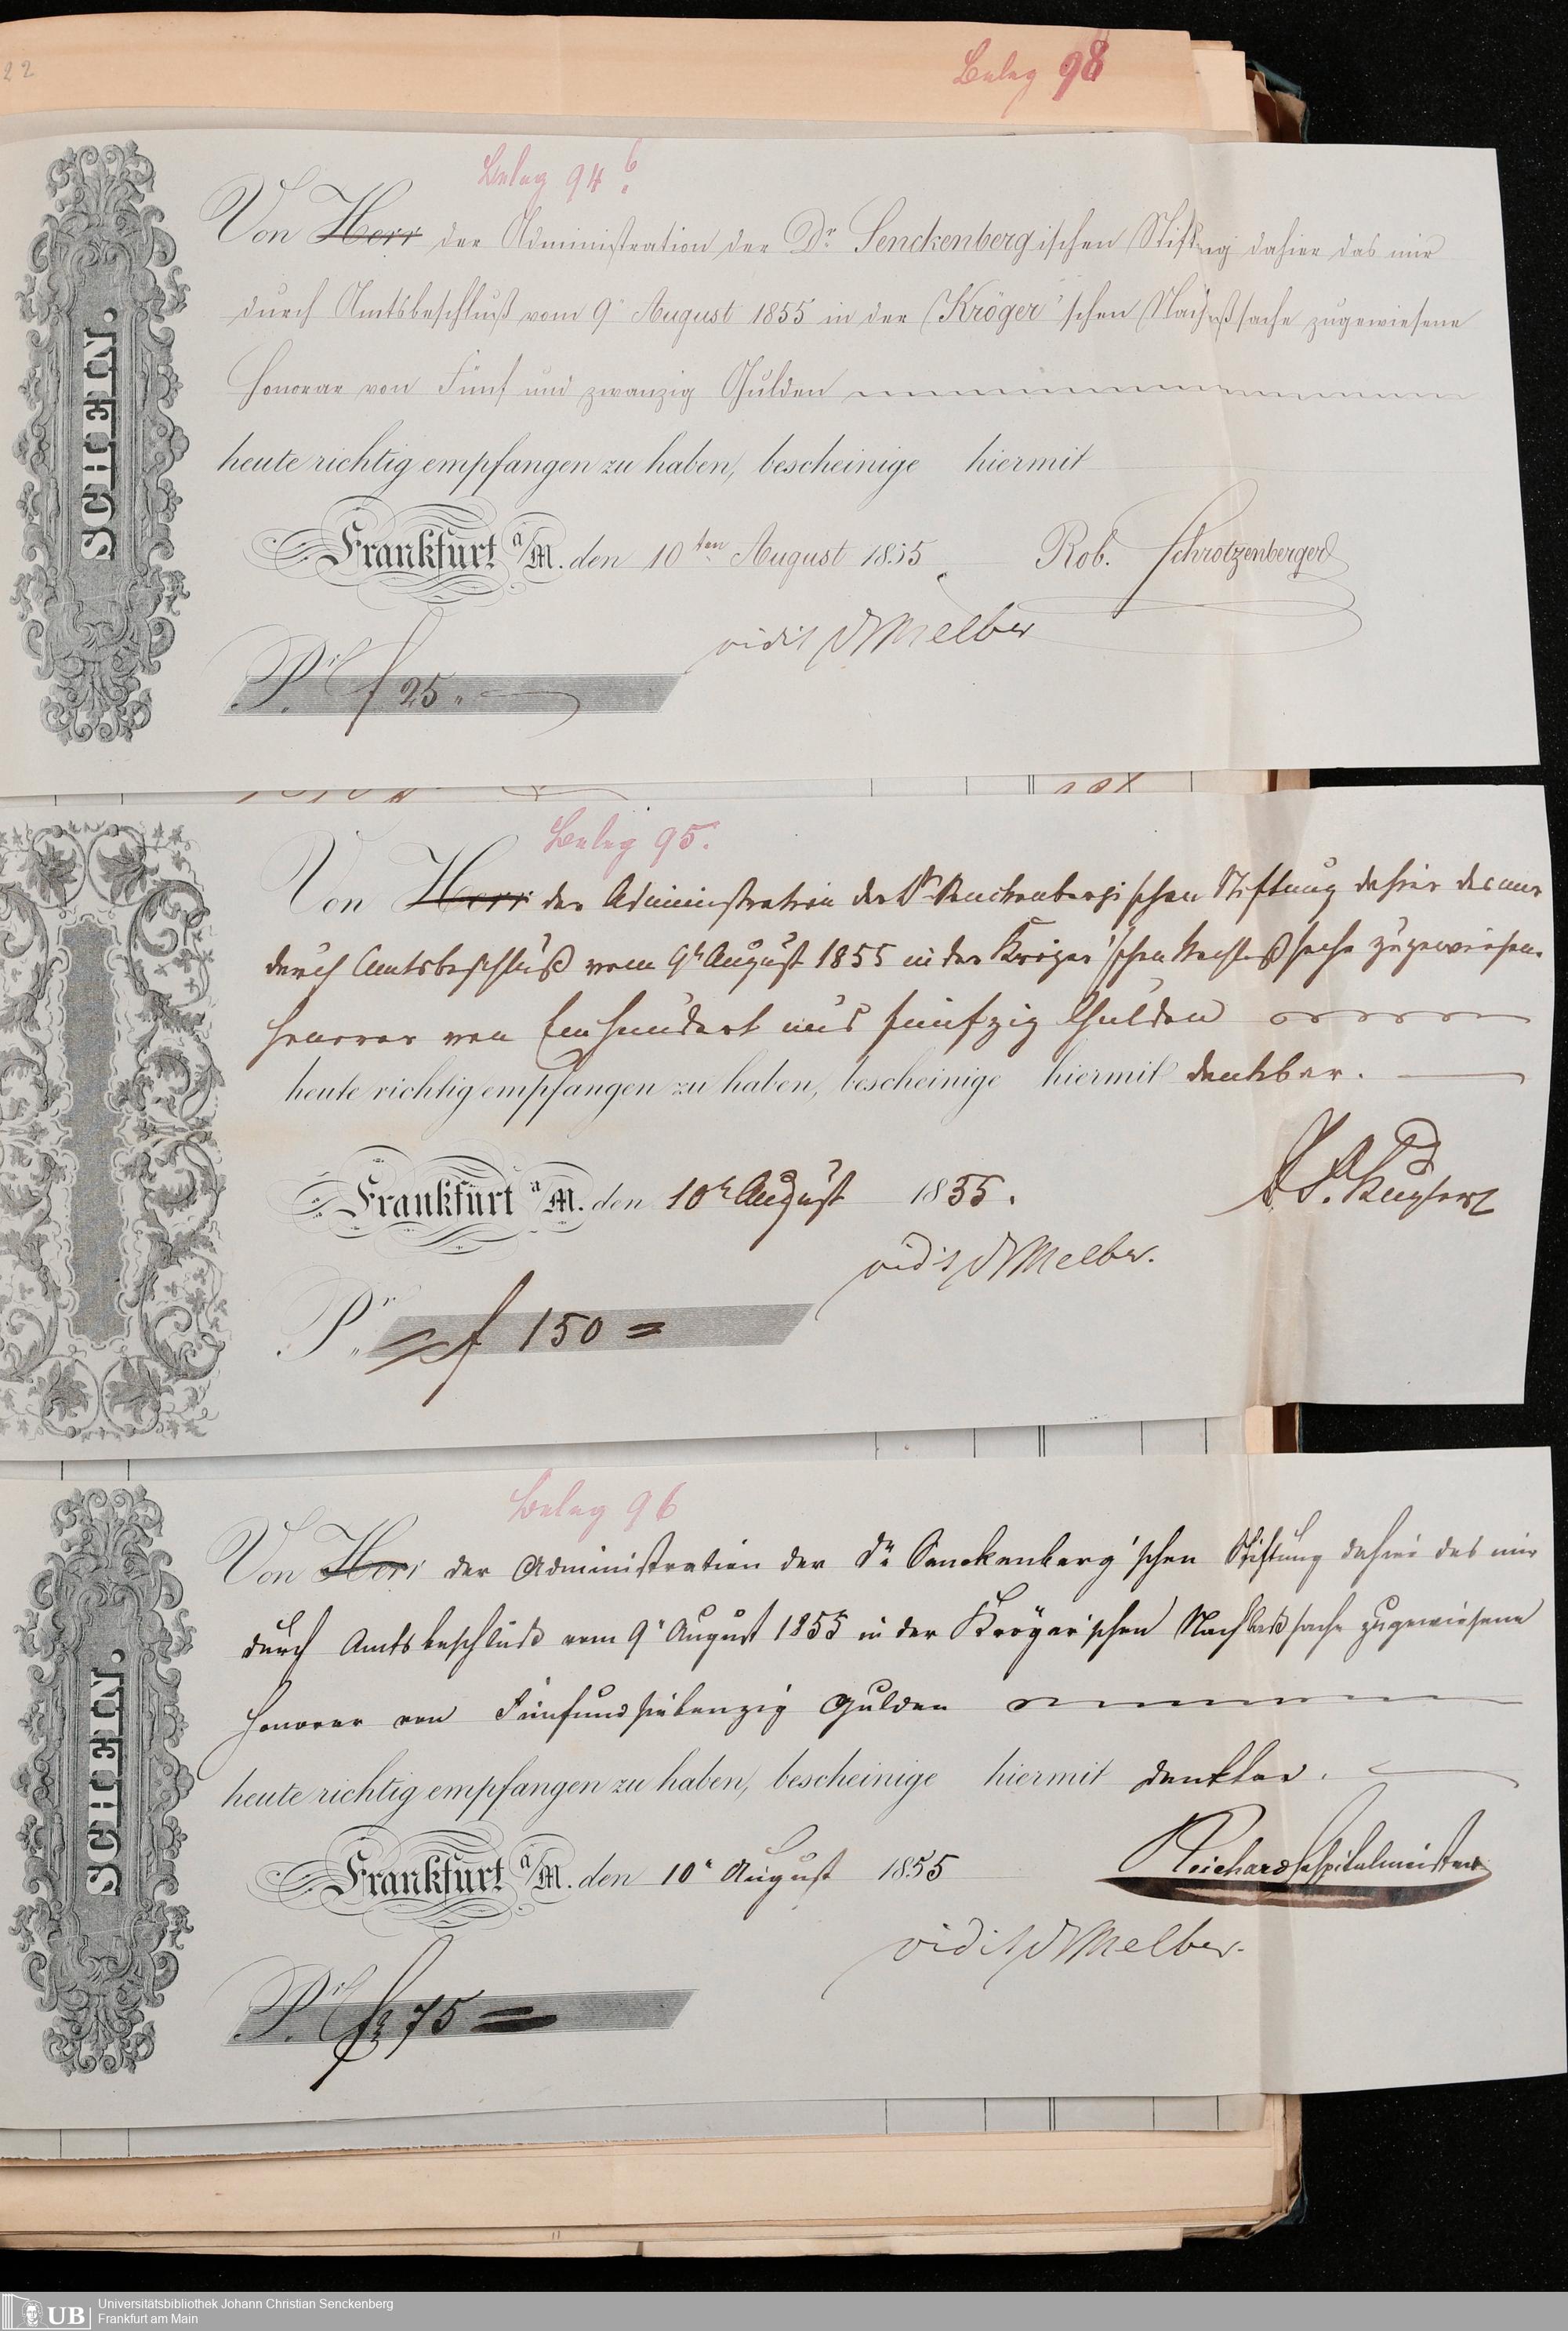 22
Beleg 98
Beleg 94 b.
SCHEIN.
Von Herr der Administration der Dr. Senckenbergischen Stiftung dahier das mir
durch Amtsbeschluß vom 9n August 1855 in der Kröger'schen Nachlaßsache zugewiesene
Honorar von Fünf und zwanzig Gulden
heute richtig empfangen zu haben, bescheinige hiermit
Frankfurt a/M. den 10ten August 1855
Rob. Schrotzenberger
vidit Dr Melber
Pr. f 25.
Beleg 95.
Von Herr der Administration der Dr Senckenbergischen Stiftung dahier das mir
durch Amtsbeschluß vom 9n August 1855 in der Kröger'schen Nachlaßsache zugewiesene
Honorar von Ein hundert und fünfzig Gulden
heute richtig empfangen zu haben, bescheinige hiermit dankbar.
Frankfurt a/M. den 10n August 1855.
vidit Dr Melber.
Pr. f 150 =
Beleg 96
SCHEIN.
Von Herr der Administration der Dr Senckenberg'schen Stiftung dahier das mir
durch Amtsbeschluß vom 9n August 1855 in der Kröger'schen Nachlaßsache zugewiesene
Honorar von Fünfundsiebenzig Gulden
heute richtig empfangen zu haben, bescheinige hiermit dankbar.
Frankfurt a/M. den 10n August 1855
Reichard Hospitalmeister
vidit Dr Melber.
Pr. f 75 =
UB
Universitätsbibliothek Johann Christian Senckenberg
Frankfurt am Main